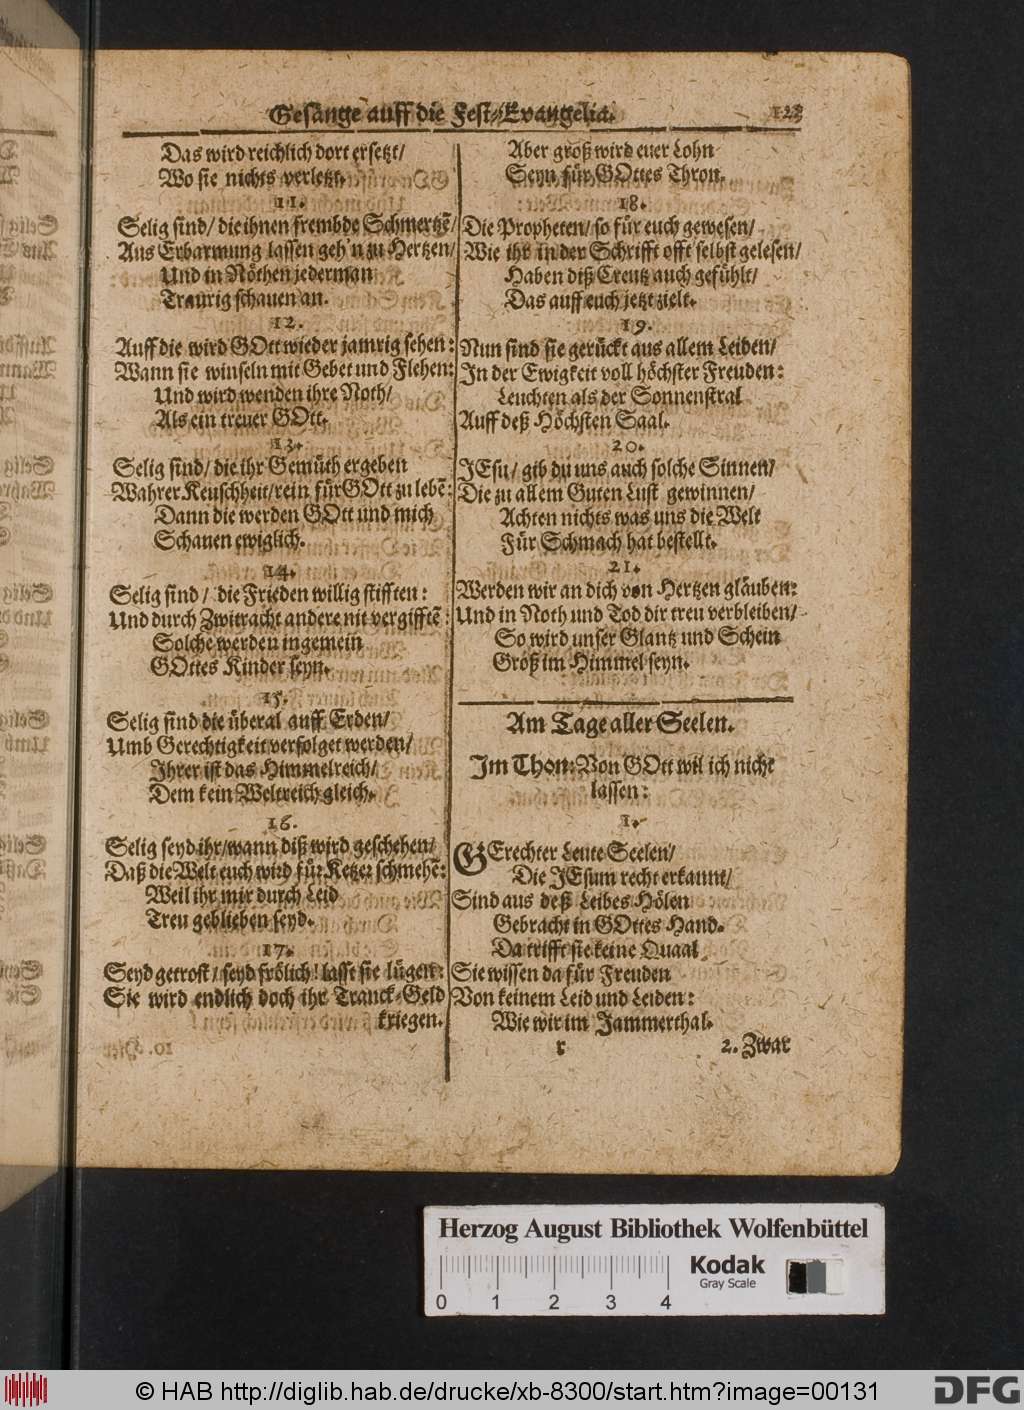 Gesänge auff die Fest-Evangelia. 123
Das wird reichlich dort ersetzt/
Wo sie nichts verletzt.
11.
Selig sind/ die ihnen frembde Schmertzē/
Aus Erbarmung lassen geh'n zu Hertzen/
Und in Nöthen jederman
Traurig schauen an.
12.
Auff die wird GOtt wieder jamrig sehen:
Wann sie winseln mit Gebet und Flehen:
Und wird wenden ihre Noth/
Als ein treuer GOtt.
13.
Selig sind/ die ihr Gemüth ergeben
Wahrer Keuschheit/ rein für GOtt zu lebē:
Dann die werden GOtt und mich
Schauen ewiglich.
14.
Selig sind/ die Frieden willig stifften:
Und durch Zwitracht andere nit vergifftē:
Solche werden ingemein
GOttes Kinder seyn.
15.
Selig sind die überal auff Erden/
Umb Gerechtigkeit verfolget werden/
Ihrer ist das Himmelreich/
Dem kein Weltreich gleich.
16.
Selig seyd ihr/ wann diß wird geschehen/
Daß die Welt euch wird für Ketzer schmehē:
Weil ihr mir durch Leid
Treu geblieben seyd.
17.
Seyd getrost/ seyd frölich! lasst sie lügen:
Sie wird endlich doch ihr Tranck-Geld
kriegen.
Aber groß wird euer Lohn
Seyn für GOttes Thron.
18.
Die Propheten/ so für euch gewesen/
Wie ihr in der Schrifft offt selbst gelesen/
Haben diß Creutz auch gefühlt/
Das auff euch jetzt zielt.
19.
Nun sind sie gerückt aus allem Leiden/
In der Ewigkeit voll höchster Freuden:
Leuchten als der Sonnenstral
Auff deß Höchsten Saal.
20.
JEsu/ gib du uns auch solche Sinnen/
Die zu allem Guten Lust gewinnen/
Achten nichts was uns die Welt
Für Schmach hat bestellt.
21.
Werden wir an dich von Hertzen gläuben:
Und in Noth und Tod dir treu verbleiben/
So wird unser Glantz und Schein
Groß im Himmel seyn.
Am Tage aller Seelen.
Im Thon: Von GOtt wil ich nicht
lassen:
1.
GErechter Leute Seelen/
Die JEsum recht erkannt/
Sind aus deß Leibes Hölen
Gebracht in GOttes Hand.
Da trifft sie keine Quaal
Sie wissen da für Freuden
Von keinem Leid und Leiden:
Wie wir im Jammerthal.
r 2. Zwar
Herzog August Bibliothek Wolfenbüttel
Kodak
Gray Scale
0 1 2 3 4
© HAB http://diglib.hab.de/drucke/xb-8300/start.htm?image=00131
DFG